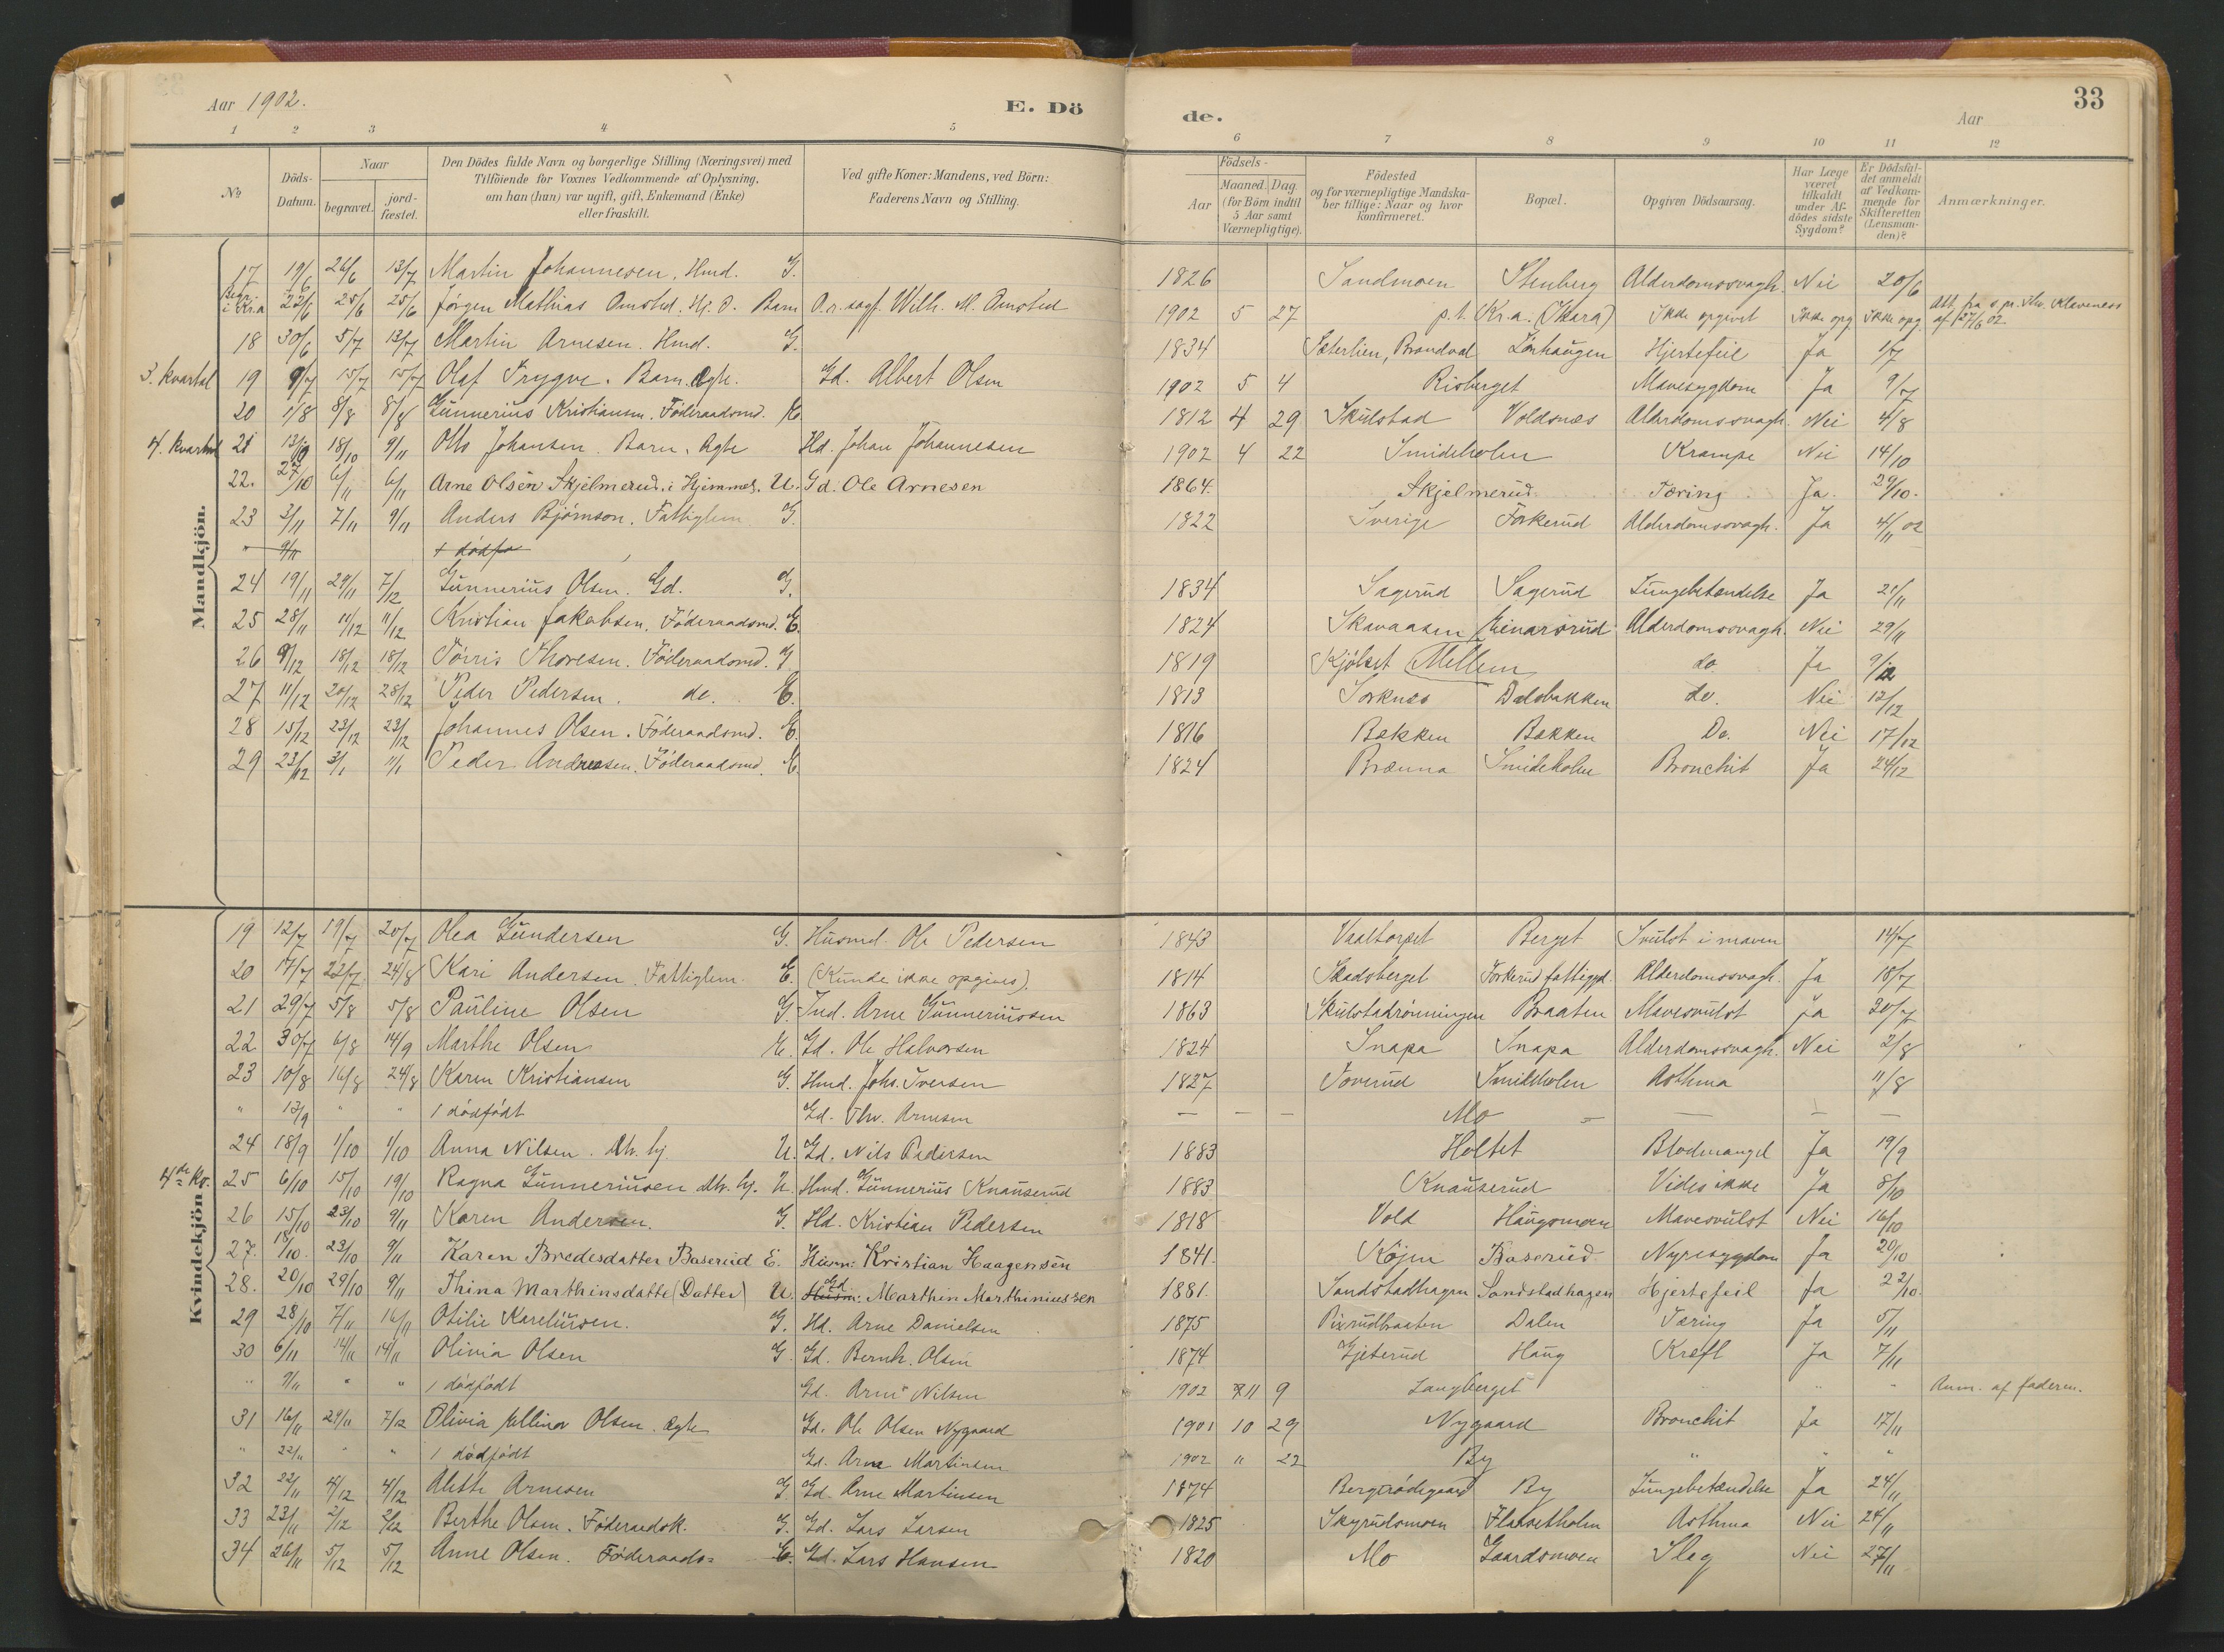 Aar 1902. E. Dö de. Aar 33
1 2 3 4 5 6 7 8 9 10 11 12
№ Döds-Datum. Naar begravet. jordfæstet. Den Dödes fulde Navn og borgerlige Stilling (Næringsvei) med Tilföiende for Voxnes Vedkommende af Oplysning, om han (hun) var ugift, gift, Enkemand (Enke) eller fraskilt. Ved gifte Koner: Mandens, ved Börn: Faderens Navn og Stilling. Födsels- Aar Maaned. Dag. (for Börn indtil 5 Aar samt Værnepligtige). Födested og for værnepligtige Mandskaber tillige: Naar og hvor konfirmeret. Bopæl. Opgiven Dödsaarsag. Har Læge været tilkaldt under Afdödes sidste Sygdom? Er Dödsfaldet anmeldt af Vedkommende for Skifteretten (Lensmanden)? Anmærkninger.
Mandkjön.
17 19/6 26/6 13/7 Martin Johannesen, Hmd. G. 1826 Sandmoen Stenberg Alderdomssvagh. Nei 20/6
Begr. i Kr.a 22/6 25/6 25/6 Jörgen Mathias Omsted. Hj. D. Barn O.r.sagf. Wilh. M. Omsted 1902 5 27 p.t. Kr.a. (Skara) Ikke opgivet Ikke opg. Ikke opg. Att. fra s.pr. Klaveness af 27/6 02
18 30/6 5/7 13/7 Martin Arnesen. Hmd. G. 1834 Sæterlien, Brandval Lörhaugen Hjertefeil Ja 1/7
3. kvartal 19 9/7 15/7 15/7 Olaf Trygve. Barn. Ægte. Gd. Albert Olsen 1902 5 4 Risberget Mavesygdom Ja 9/7
20 1/8 8/8 8/8 Gunnerius Kristiansen. Föderaadsmd. E. 1812 4 29 Skulstad Voldsnæs Alderdomssvagh. Nei 4/8
4. kvartal 21 13/10 18/10 9/11 Otto Johansen. Barn. Ægte Hd. Johan Johannesen 1902 4 22 Smideholen Krampe Nei 14/10
22. 27/10 6/11 6/11 Arne Olsen Skjelmerud. i Hjemmet. U. Gd. Ole Arnesen 1864. Skjelmerud Tæring Ja. 29/10.
23 3/11 7/11 9/11 Anders Björnson. Fattiglem G. 1822 Sverige Forkerud Alderdomssvagh. Ja 4/11 02
" 9/11 1 dødfø
24 19/11 29/11 7/12 Gunnerius Olsen. Gd. G. 1834 Sagerud Sagerud Lungebetændelse Ja 21/11
25 28/11 11/12 11/12 Kristian Jakobsen. Föderaadsmd. E. 1824 Skavaasen Einarsrud Alderdomssvagh. Nei 29/11
26 9/12 18/12 18/12 Törris Thoresen. Föderaadsmd. G. 1819 Kjölset Mellem do Ja 9/12
27 11/12 20/12 28/12 Peder Pedersen. do. E. 1813 Sorknæs Dalsbakken do. Nei 12/12
28 15/12 23/12 23/12 Johannes Olsen. Föderaadsmd. E. 1816 Bakken Bakken Do. Nei 17/12
29 23/12 3/1 11/1 Peder Andresen. Föderaadsmd. E. 1824 Brænna Smideholen Bronchit Ja 24/12
Kvindekjön.
19 12/7 19/7 20/7 Olea Gundersen G. Husmd. Ole Pedersen 1843 Vaaltorpet Berget Svulst i maven 14/7
20 17/7 22/7 24/8 Kari Andersen. Fattiglem. E. (Kunde ikke opgives). 1814 Skadsberget Forkerud fattiggd. Alderdomssvagh. Ja 18/7
21 29/7 5/8 5/8 Pauline Olsen G. Ind. Arne Gunneriussen 1863 Skulstadrönningen Braaten Mavesvulst Ja 30/7
22 30/7 6/8 14/9 Marthe Olsen E. Gd. Ole Halvorsen 1824 Snapa Snapa Alderdomssvagh. Nei 2/8
23 10/8 16/8 24/8 Karen Kristiansen G. Hmd. Johs. Iversen 1827 Toverud Smideholen Asthma 11/8
" 13/9 " " 1 dødfødt Gd. Thv. Arnesen — — — Mo — — — —
24 18/9 1/10 1/10 Anna Nilsen. dtr. hj. U. Gd. Nils Pedersen 1883 Holtet Blodmangel Ja 19/9
4de Kv. 25 6/10 15/10 19/10 Ragna Gunneriusen dtr. hj. U. Hmd. Gunnerius Knauserud 1883 Knauserud Vides ikke Ja 8/10
26 15/10 23/10 9/11 Karen Andersen. G. Hd. Kristian Pedersen 1818 Vold Haugsmoen Mavesvulst Nei 16/10
27. 18/10. 23/10 9/11 Karen Bredesdatter Baserud E. Husm: Kristian Haagensen 1841. Köjen Baserud Nyresygdom Ja 20/10
28. 20/10 29/10 9/11 Thina Marthinsdatte (Datter) U. Husm: Gd Marthin Marthiniussen 1881. Sandstadhagen Sandstadhagen Hjertefeil Ja 22/10.
29 28/10 7/11 16/11 Otilie Kareliusen. G. Hd. Arne Danielsen 1875 Pixrudbraaten Dalen Tæring Ja 5/11
30 6/11 14/11 14/11 Olivia Olsen G. Gd. Bernh. Olsen 1874 Gjeterud Haug Kræft Ja 7/11
" 9/11 " " 1 dødfødt Gd. Arne Nilsen 1902 11 9 Langberget " " Anm. af faderen.
31 16/11 29/11 7/12 Olivia Ellina Olsen. ægte Gd. Ole Olsen Nygaard 1901 10 29 Nygaard Bronchit Ja 17/11
" 22/11 " " 1 dødfødt Gd. Arne Martinsen 1902 " 22 By " " "
32 22/11 4/12 4/12 Alette Arnesen G. Gd. Arne Martinsen 1874 Bergerödegaard By Lungebetændelse Ja 24/11
33 23/11 2/12 2/12 Berthe Olsen. Föderaadsk. G. Gd. Lars Larsen 1825 Skyrudsmoen Flatsetholen Asthma Nei 24/11
34 26/11 5/12 5/12 Anne Olsen. Föderaads= E. Gd. Lars Hansen 1820 Mo Gaardsmoen Slag Nei 27/11